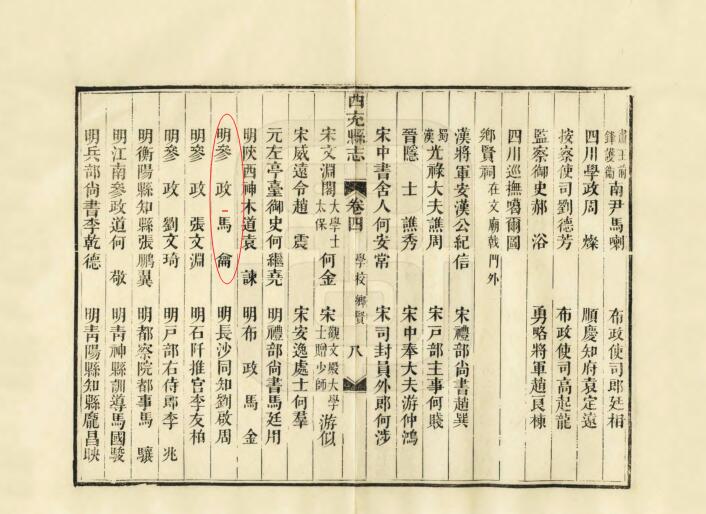 畫王前鋒護衛南尹馬喇 布政使司郎廷相
四川學政周燦 順慶知府袁定遠
按察使司劉德芳 布政使司高起龍
監察御史郝浴 勇略將軍趙良棟
四川巡撫噶爾圖
鄉賢祠在文廟戟門外
漢將軍安漢公紀信 宋禮部尚書趙巽
蜀漢光祿大夫譙周 宋戸部主事何賤
晉隱士譙秀 宋中奉大夫游仲鴻
宋中書舍人何安常 宋司封員外郎何涉
西充縣志 卷四 學校 鄉賢 八
宋文淵閣大學士太保何金 宋觀文殿大學士贈少師游似
宋威遠令趙震 宋安逸處士何羣
元左亭臺御史何繼堯 明禮部尚書馬廷用
明陜西神木道袁諫 明布政馬金
明參政馬龠 明長沙同知劉啟周
明參政張文淵 明石阡推官李友柏
明參政劉文琦 明戸部右侍郎李兆
明衡陽縣知縣張鵬翼 明都察院都事馬驤
明江南參政道何敬 明青神縣訓導馬國駿
明兵部尚書李乾德 明青陽縣知縣龐昌映